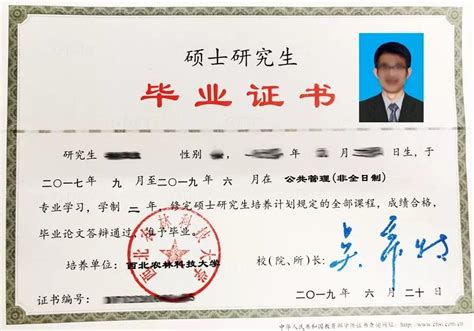 硕士研究生
毕业证书
研究生 性别 年 月 日生，于
二〇一七年 九 月至二〇一九年 六 月在 公共管理(非全日制)
专业学习，学制 二 年，修完硕士研究生培养计划规定的全部课程，成绩合格，
毕业论文答辩通过，准予毕业。
培养单位：西北农林科技大学 校(院、所)长：
西北农林科技大学
证书编号： 二〇一九年 六 月 二十 日
中华人民共和国教育部学历证书查询网址：http://www.chsi.com.cn